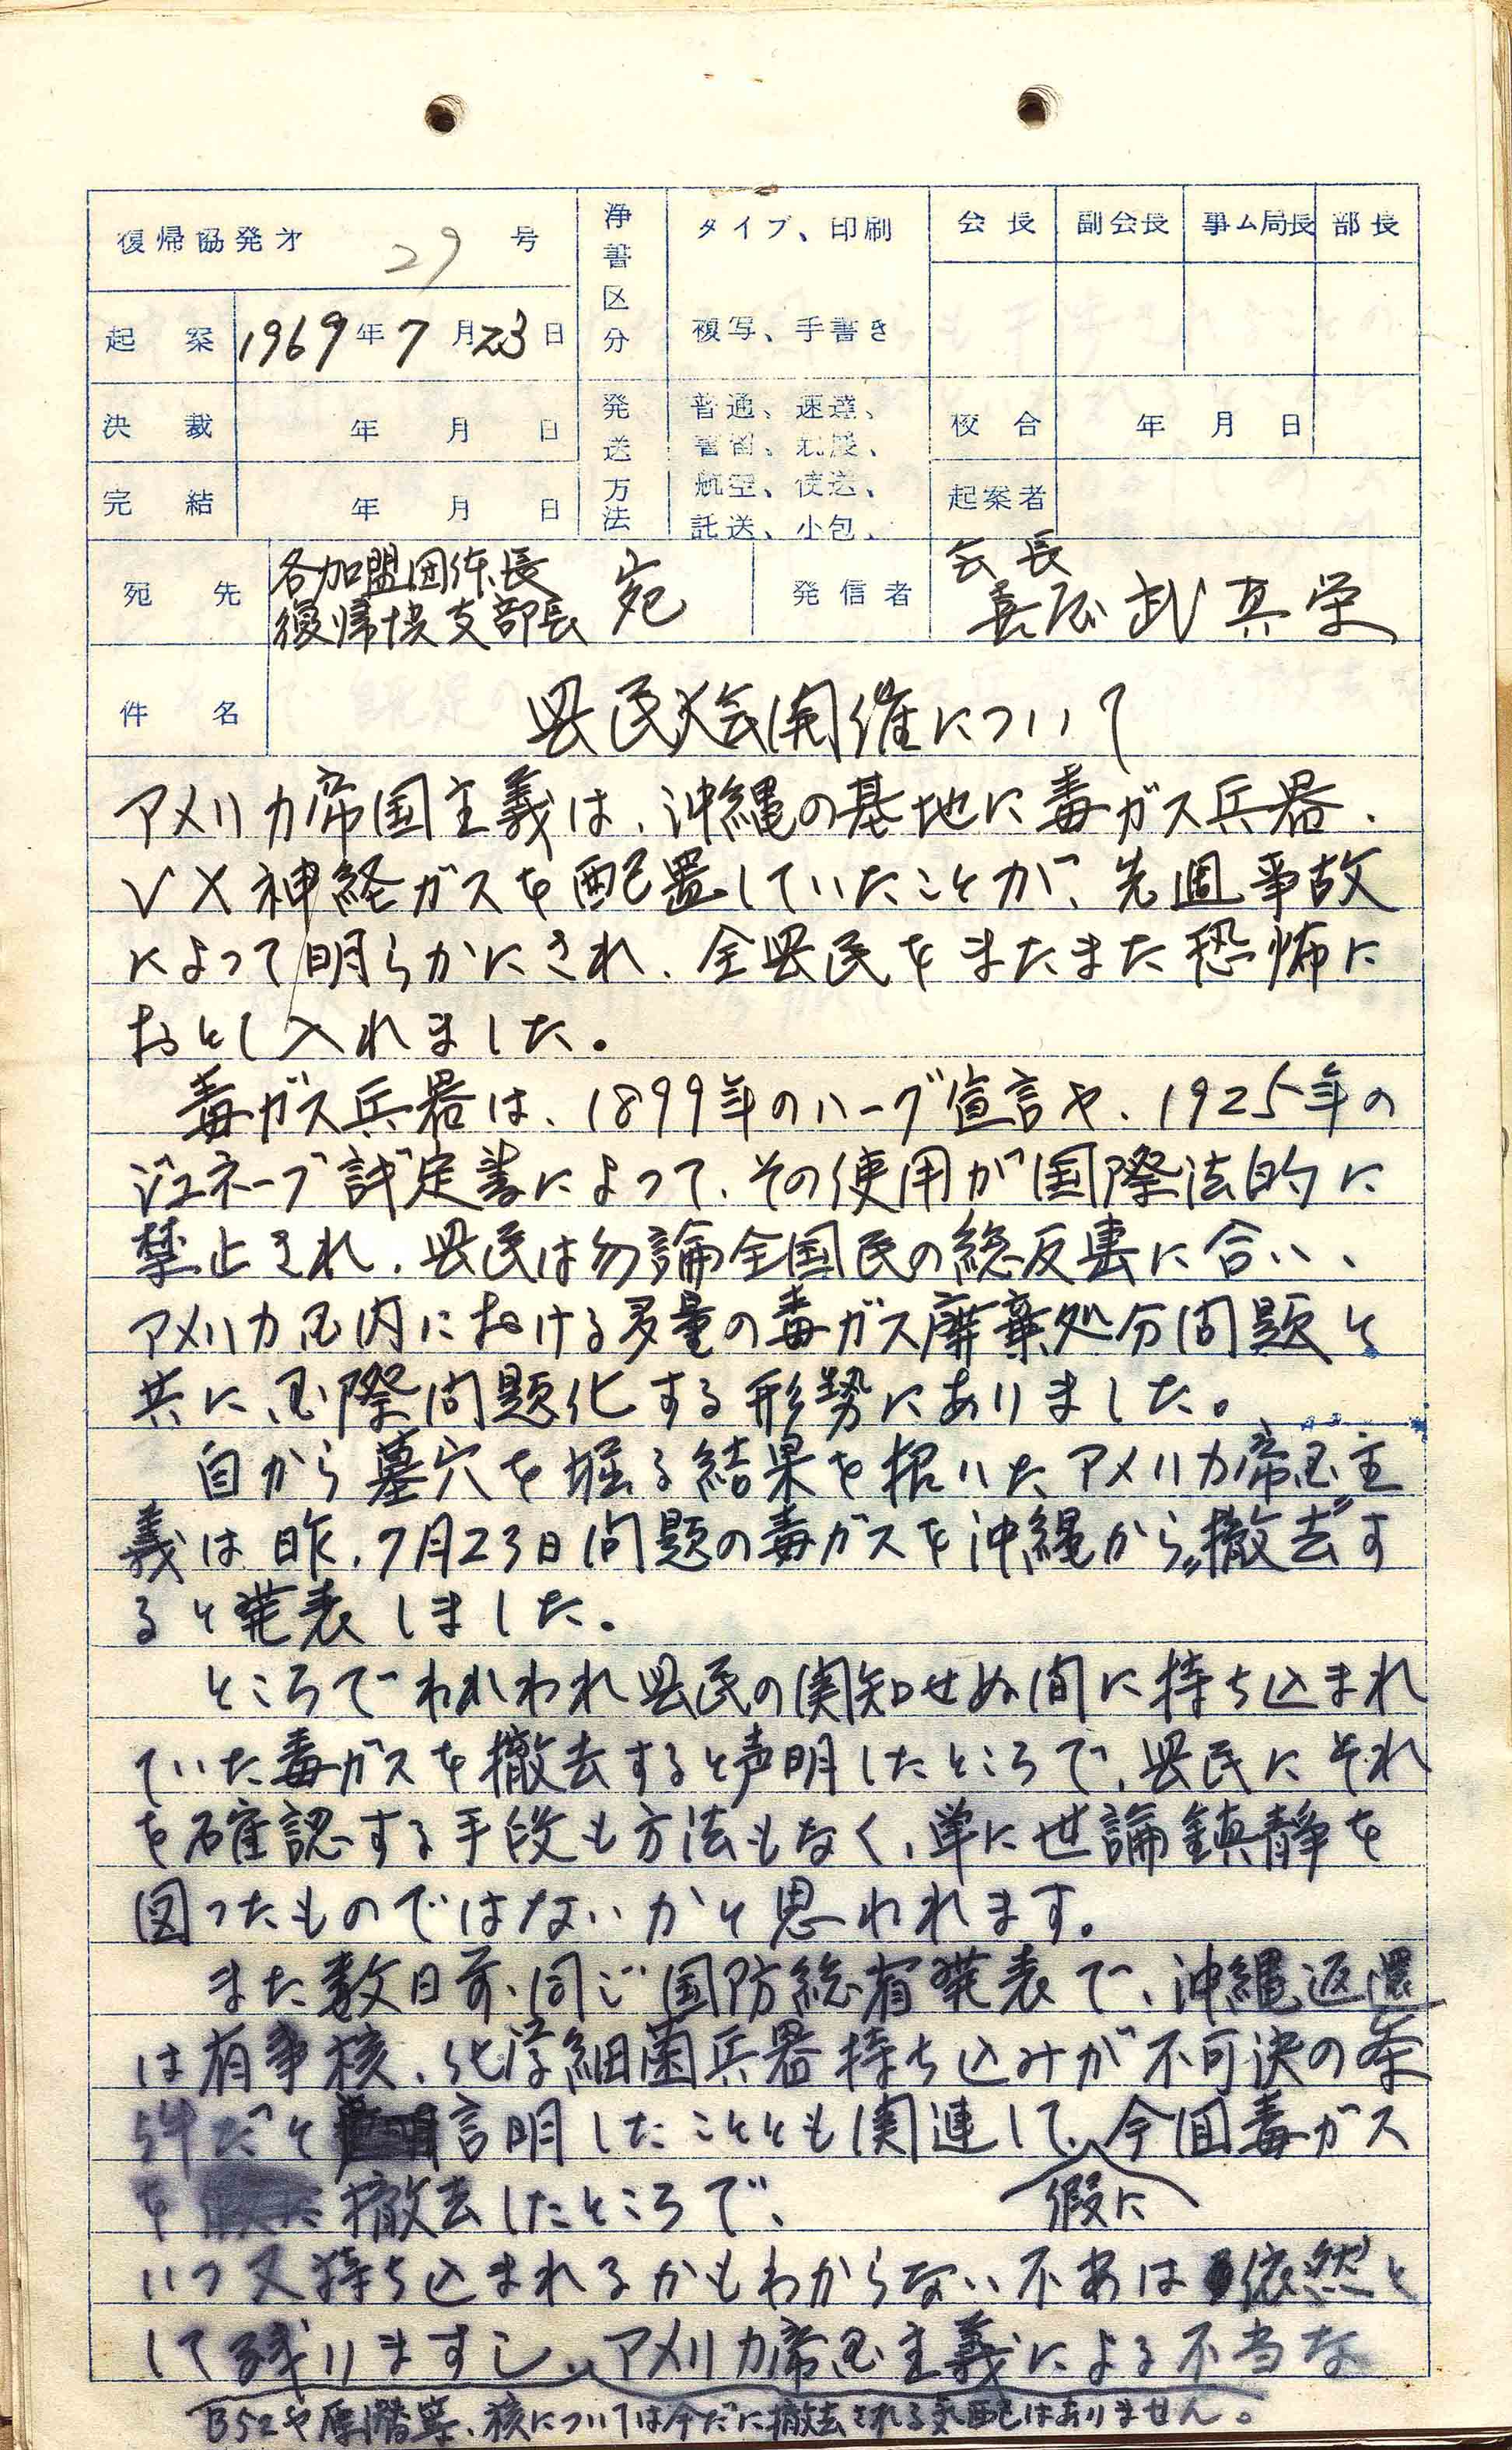 復帰協発才 29 号
浄書区分
タイプ、印刷
複写、手書き
会長 副会長 事ム局長 部長
起案 1969年7月23日
決裁 年 月 日
完結 年 月 日
発送方法
普通、速達、
書留、親展、
航空、使送、
託送、小包、
校合 年 月 日
起案者
宛先 各加盟団体長
復帰協支部長 宛
発信者 会長
喜屋武真栄
件名 県民大会開催について
アメリカ帝国主義は、沖縄の基地に毒ガス兵器、
VX神経ガスを配置していたことが、先週事故
によって明らかにされ、全県民をまたまた恐怖に
おとし入れました。
毒ガス兵器は、1899年のハーグ宣言や、1925年の
ジュネーブ議定書によって、その使用が国際法的に
禁止され、県民は勿論全国民の総反撃に合い、
アメリカ国内における多量の毒ガス廃棄処分問題と
共に国際問題化する形勢にありました。
自から墓穴を堀る結果を招いたアメリカ帝国主
義は昨、7月23日問題の毒ガスを沖縄から〝撤去〟す
ると発表しました。
ところでわれわれ県民の関知せぬ間に持ち込まれ
ていた毒ガスを撤去すると声明したところで、県民にそれ
を確認する手段も方法もなく、単に世論鎮静を
図ったものではないかと思われます。
また数日前、同じ国防総省発表で、沖縄返還
は有事核、化学細菌兵器持ち込みが不可決の条
件だと言明したこととも関連して、今回毒ガス
を撤去したところで、
仮に
いつ又持ち込まれるかもわからない不安は依然と
して残りますし、アメリカ帝国主義による不当な
B52や原潜寄、核については今だに撤去される気配はありません。